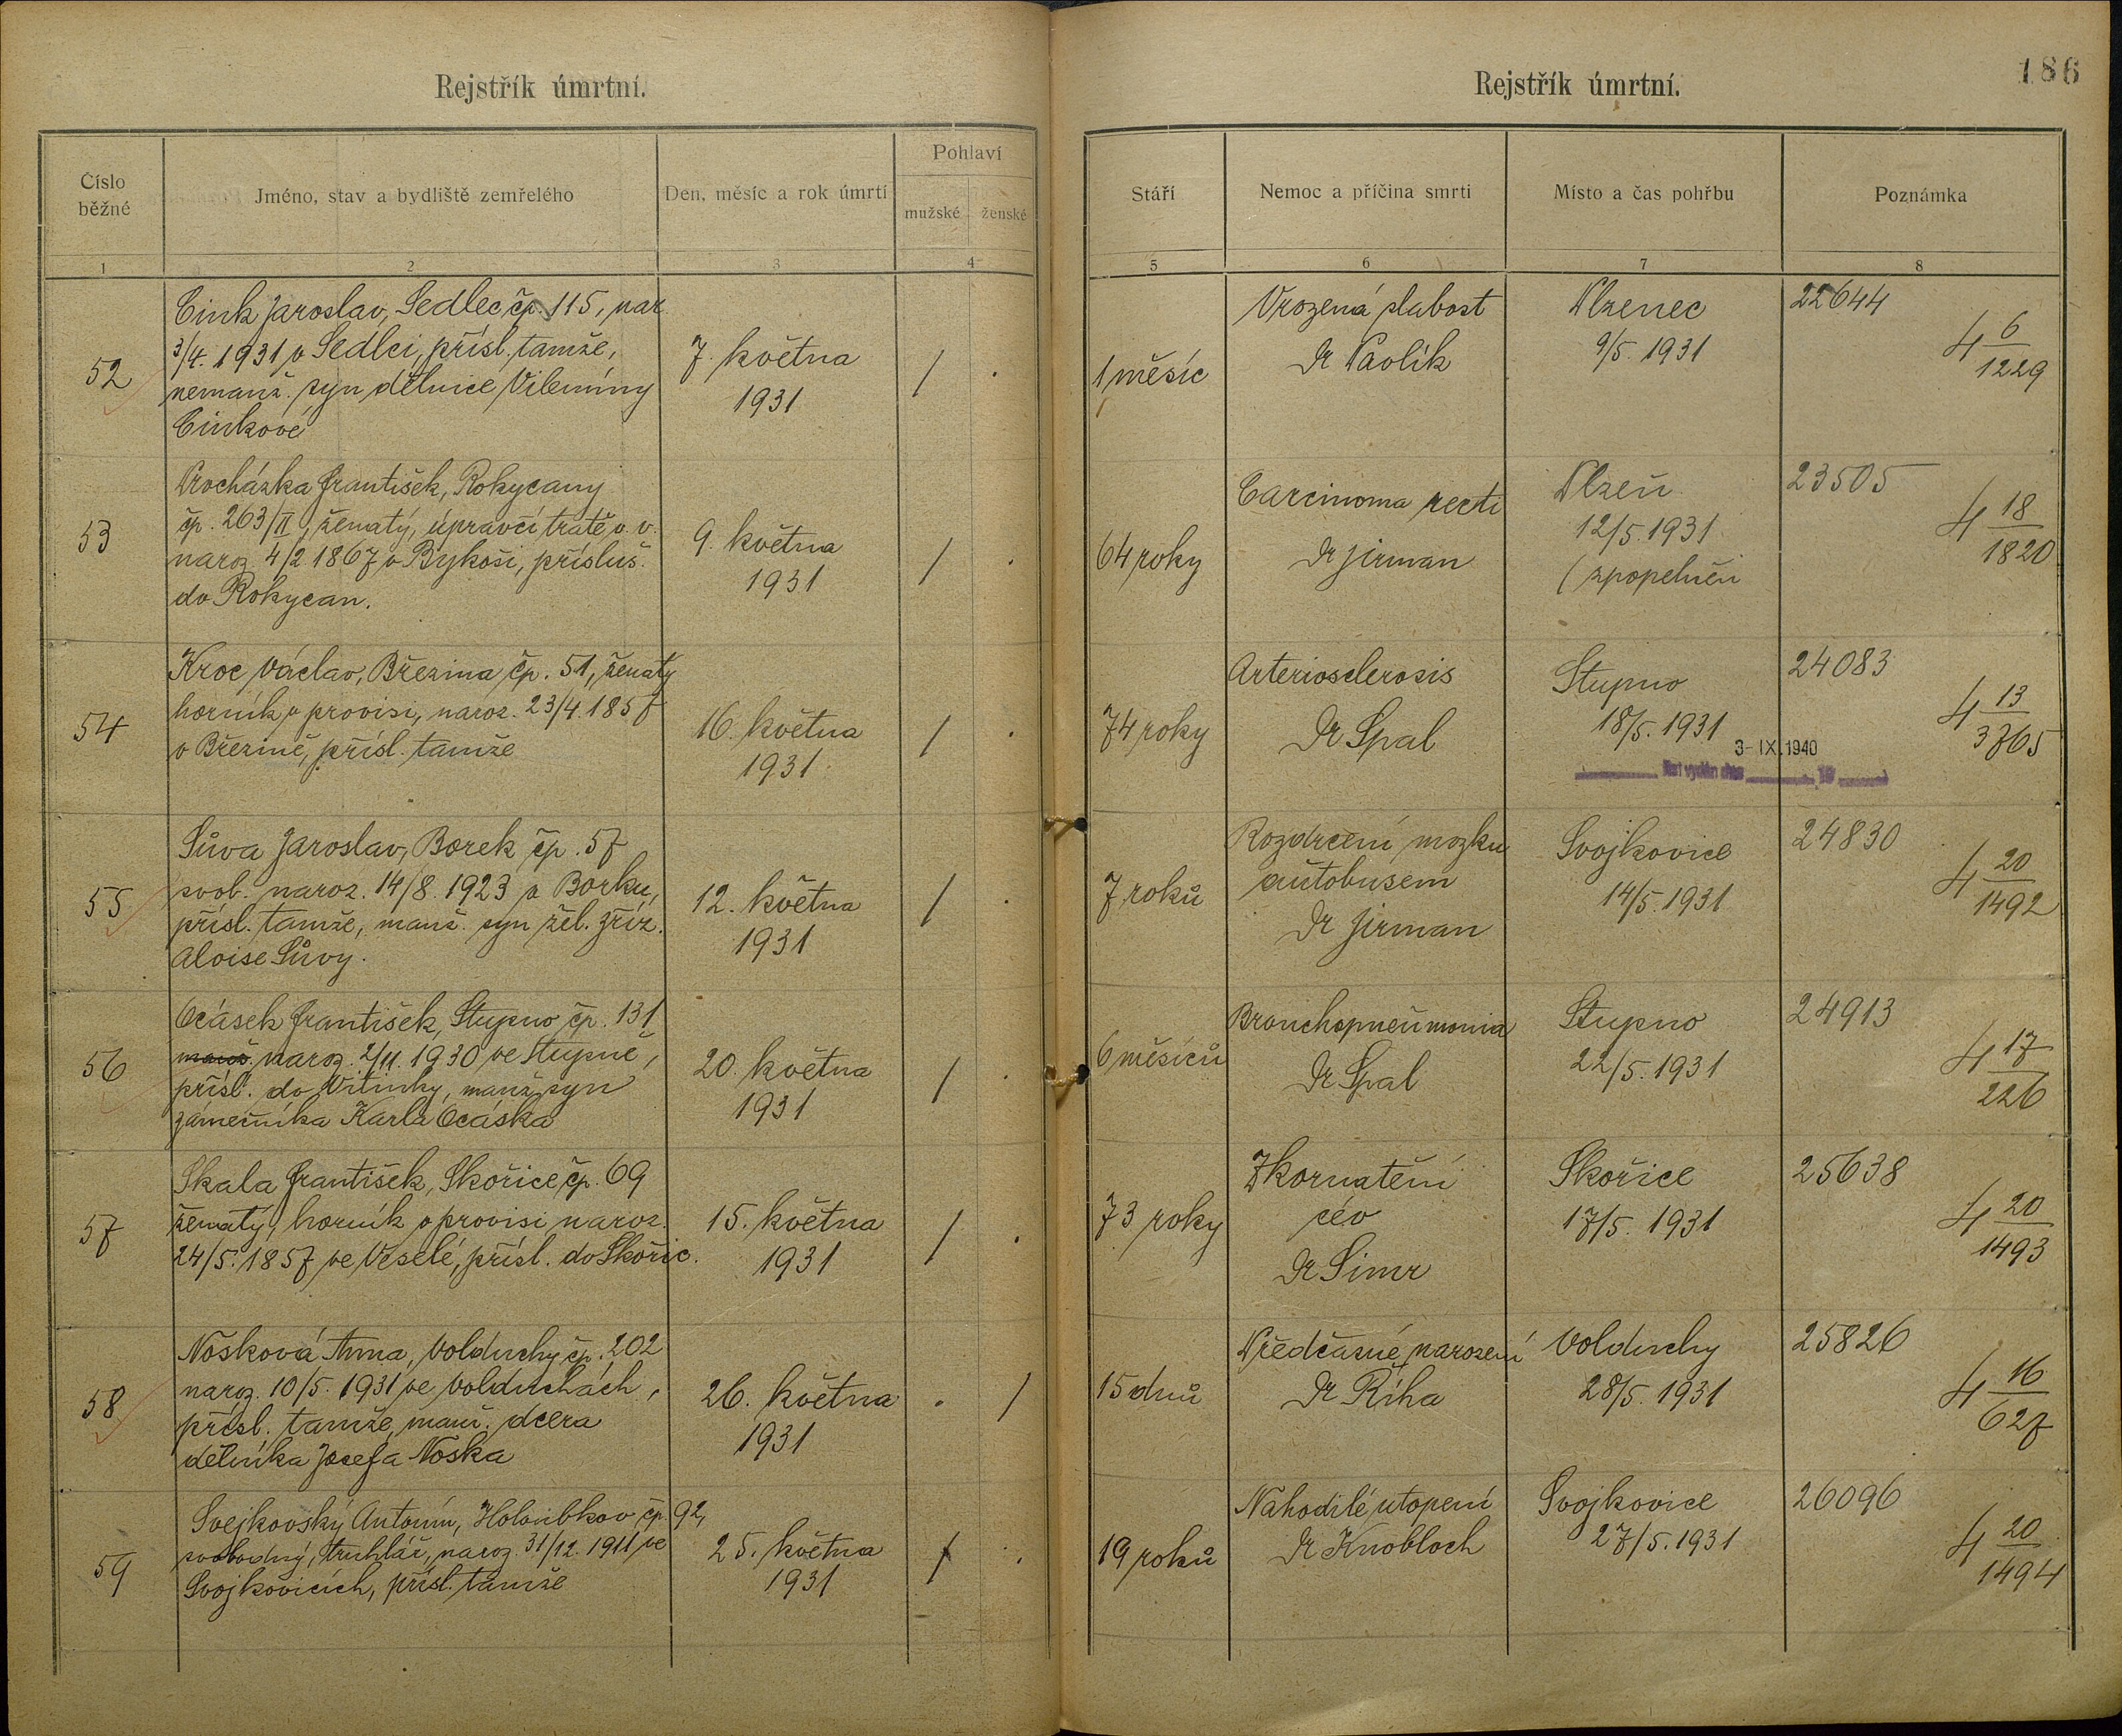 Rejstřík úmrtní.
Číslo běžné
Jméno, stav a bydliště zemřelého
Den, měsíc a rok úmrtí
Pohlaví
mužské
ženské
1
2
3
4
52
Cink Jaroslav, Sedlec čp. 115, nar.
3/4. 1931 v Sedlci, přísl. tamže,
nemanž. syn dělnice Vilemíny
Cinkové
7. května
1931
/ .
53
Procházka František, Rokycany
čp. 263/II, ženatý, úpravčí tratě v. v.
naroz. 4/2 1867 v Bykoši, přísluš.
do Rokycan.
9. května
1931
/ .
54
Kroc Václav, Březina čp. 51, ženatý
horník v provisi, naroz. 23/4. 1857
v Březině, přísl. tamže
16. května
1931
/ .
55
Sůva Jaroslav, Borek čp. 57
svob. naroz. 14/8. 1923 v Borku,
přísl. tamže, manž. syn žel. zříz.
Aloise Sůvy.
12. května
1931
/ .
56
Ocásek František, Stupno čp. 131
manž. naroz. 2/11. 1930 ve Stupně,
přísl. do Vitinky, manž. syn
zámečníka Karla Ocáska
20. května
1931
/ .
57
Skala František, Skořice čp. 69
ženatý, horník v provisi naroz.
24/5. 1857 ve Veselé, přísl. do Skořic.
15. května
1931
/ .
58
Nosková Anna, Volduchy čp. 202
naroz. 10/5. 1931 ve Volduchách,
přísl. tamže, manž. dcera
dělníka Josefa Noska
26. května
1931
. /
59
Svejkovský Antonín, Holoubkov čp. 92,
svobodný, truhlář, naroz. 31/12. 1911 ve
Svojkovicích, přísl. tamže
25. května
1931
/ .
186
Rejstřík úmrtní.
Stáří
Nemoc a příčina smrti
Místo a čas pohřbu
Poznámka
5
6
7
8
1 měsíc
Vrozená slabost
Dr Pavlík
Plzenec
9/5. 1931
22644
4 6/1229
64 roky
Carcinoma recti
Dr Jirman
Plzeň
12/5. 1931
(zpopelněn
23505
4 18/1820
74 roky
Arteriosclerosis
Dr Spal
Stupno
18/5. 1931
24083
4 13/3765
3-IX.1940
list vydán dne 19
7 roků
Rozdrcení mozku
autobusem
Dr Jirman
Svojkovice
14/5. 1931
24830
4 20/1492
6 měsíců
Bronchopneumonia
Dr Spal
Stupno
22/5. 1931
24913
4 17/226
73 roky
Zkornatění
cév
Dr Simr
Skořice
17/5. 1931
25638
4 20/1493
15 dnů
Předčasné narození
Dr Říha
Volduchy
28/5. 1931
25826
4 16/627
19 roků
Nahodilé utopení
Dr Knobloch
Svojkovice
27/5. 1931
26096
4 20/1494